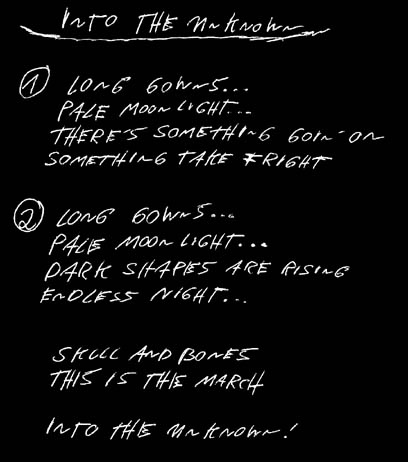 INTO THE UNKNOWN
1 LONG GOWNS...
PALE MOONLIGHT...
THERE'S SOMETHING GOIN' ON
SOMETHING TAKE FRIGHT
2 LONG GOWNS...
PALE MOONLIGHT...
DARK SHAPES ARE RISING
ENDLESS NIGHT...
SKULL AND BONES
THIS IS THE MARCH
INTO THE UNKNOWN!